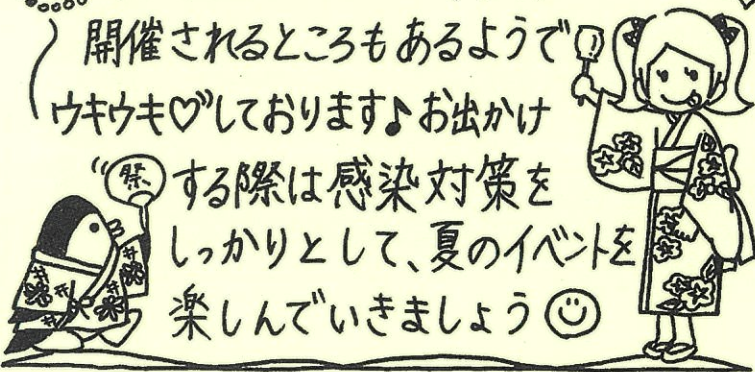 開催されるところもあるようで
ウキウキ♡しております♪お出かけ
する際は感染対策を
しっかりとして、夏のイベントを
楽しんでいきましょう☺
祭